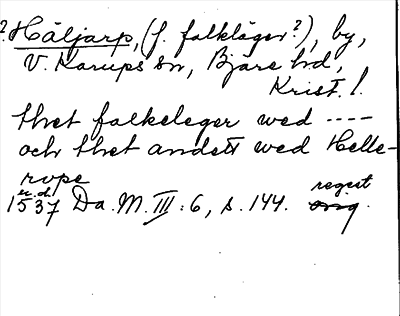 ? Häljarp, (f. falkläger?), by,
V. Karups sn, Bjäre hd,
Krist. l.
thet falkeleger wed ----
och thet andett wed Helle-
rope
u.d.
1537 Da. M. III: 6, s. 144. regest
orig.